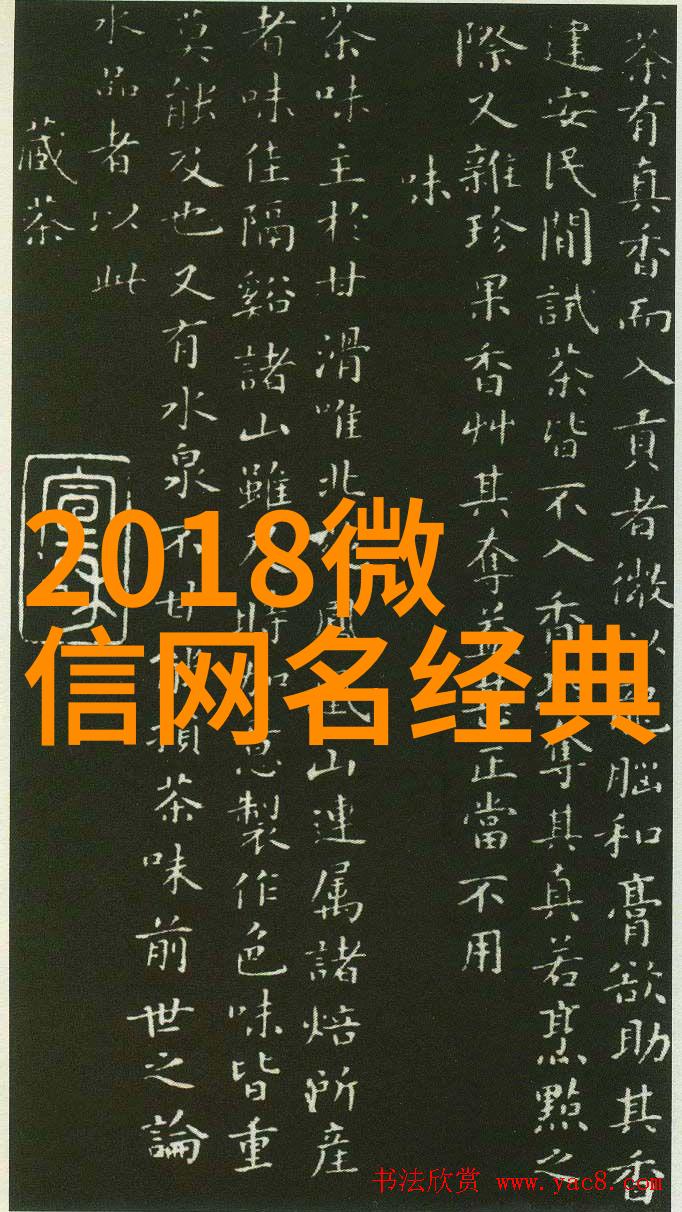 茶有真香而入貢者微以腦和膏欲助其香
建安民間試茶皆不入香奪其真若烹點之
際又雜珍果香艸其奪正當不用
味
茶味主於甘滑唯北山連属諸焙所產
者味佳隔谿諸山雖製作色味皆重
莫能及也又有水泉不甘損茶味前世之論
水品者以此
藏茶
2018微
信网名经典
书法欣赏 www.yac8.com